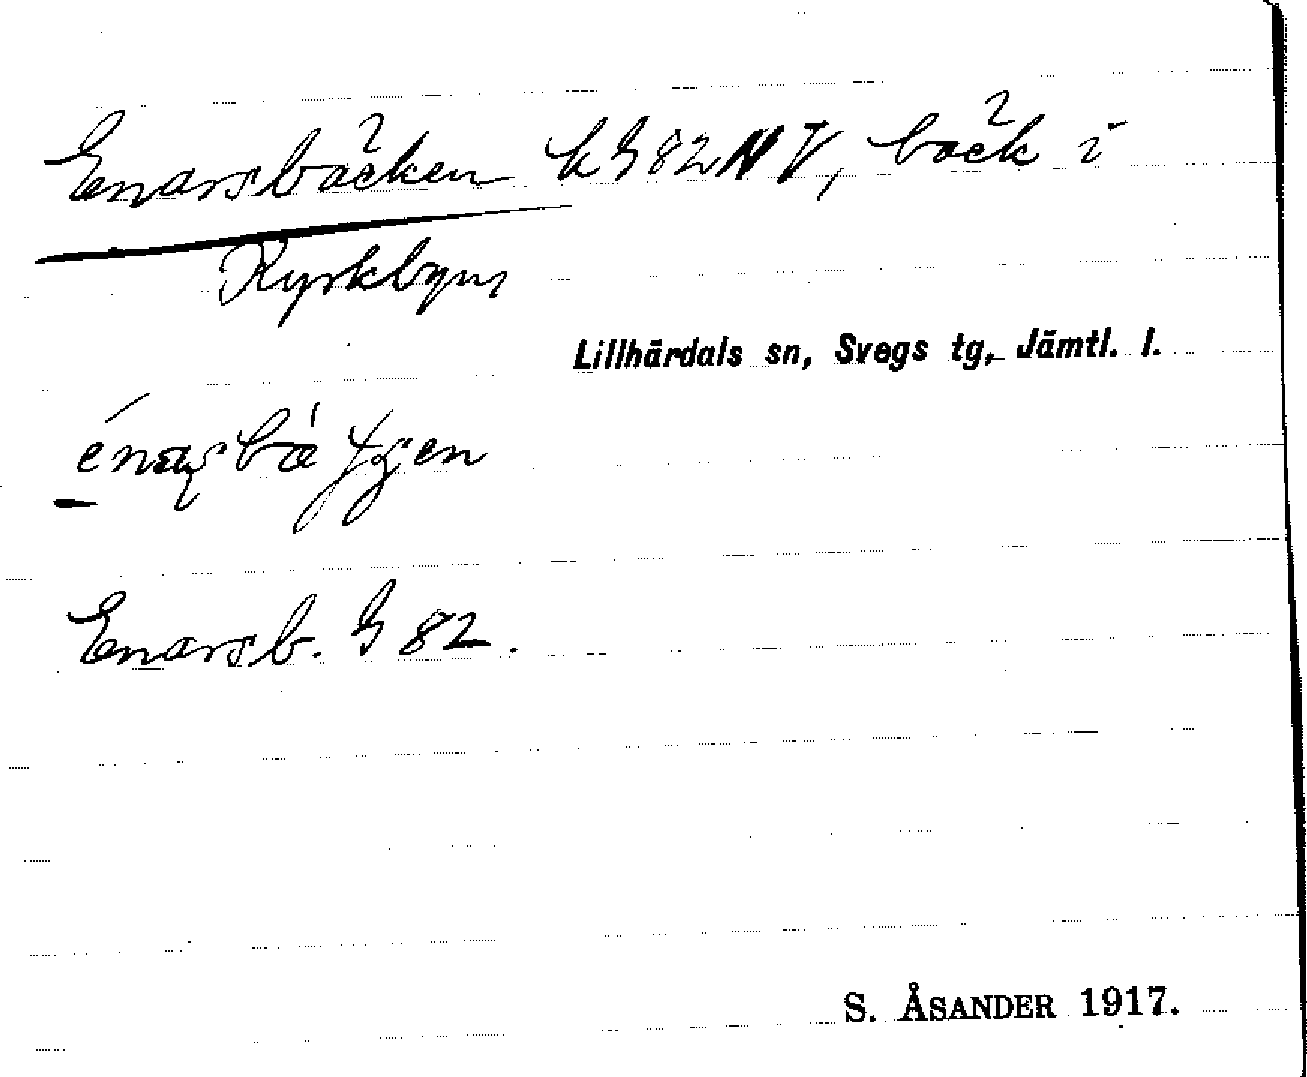 Enarsbäcken k G 82 NV, bäck i
Kyrkbyns
Lillhärdals sn, Svegs tg, Jämtl. l.
Enarsb. G 82.
S. ÅSANDER 1917.